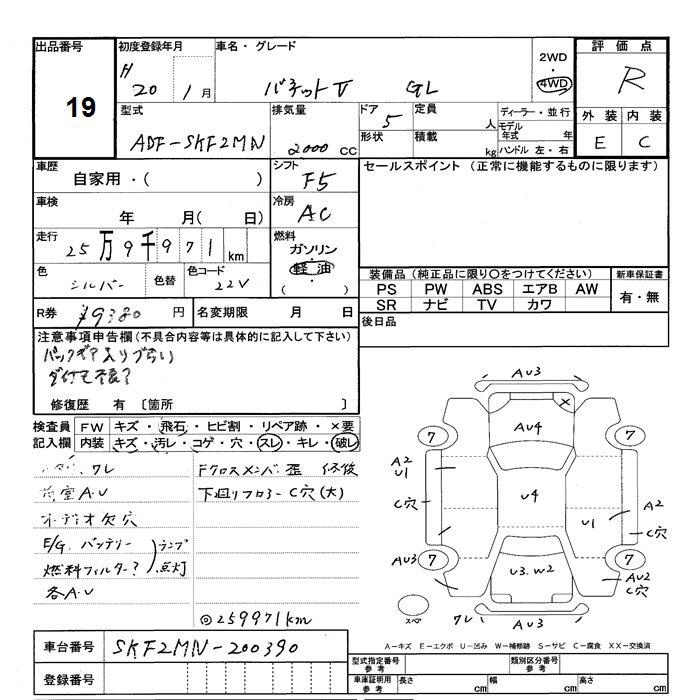 出品番号
19
初度登録年月
H 20 1月
車名・グレード
バネットV GL
2WD
・
4WD
評価点
R
型式
ADF-SKF2MN
排気量
2000 CC
ドア
5
形状
定員
人
積載
kg
ディーラー・並行
モデル年式 年
ハンドル 左・右
外装 内装
E C
車歴
自家用・( )
シフト
F5
セールスポイント (正常に機能するものに限ります)
車検
年 月( 日)
冷房
AC
走行
25万9千971km
燃料
ガソリン
・
軽油
( )
色
シルバー
色替
色コード
22V
装備品 (純正品に限り○をつけてください)
PS PW ABS エアB AW
SR ナビ TV カワ
新車保証書
有・無
R券
¥9380円
名変期限 月 日
後日品
注意事項申告欄(不具合内容等は具体的に記入して下さい)
バックギア入りづらい
ダイナモ不良?
修復歴 有〔箇所 〕
検査員
記入欄
FW キズ・飛石・ヒビ割・リペア跡・×要
内装 キズ・汚レ・コゲ・穴・スレ・キレ・破レ
ワレ
Fクロスメンバ歪 修復
荷室A・U
下廻りフロアーC穴(大)
オーディオ欠穴
E/G.バッテリー
燃料フィルター?
ランプ
点灯
各A・U
◎259971km
AU3
×
AU4
7
7
A2
U1
C穴
U4
U1
A2
C穴
AU3
7
7
U3.W2
AU2
C穴
スペア
ワレ
AU3
A−キズ E−エクボ U−凹み W−補修跡 S−サビ C−腐食 XX−交換済
車台番号
SKF2MN-200390
登録番号
型式指定番号
参考
類別区分番号
参考
車庫証明用
参考
長さ cm
幅 cm
高さ cm